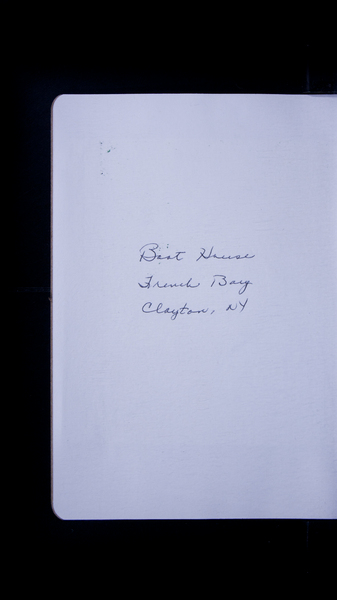 Boat House
French Bay
Clayton, NY